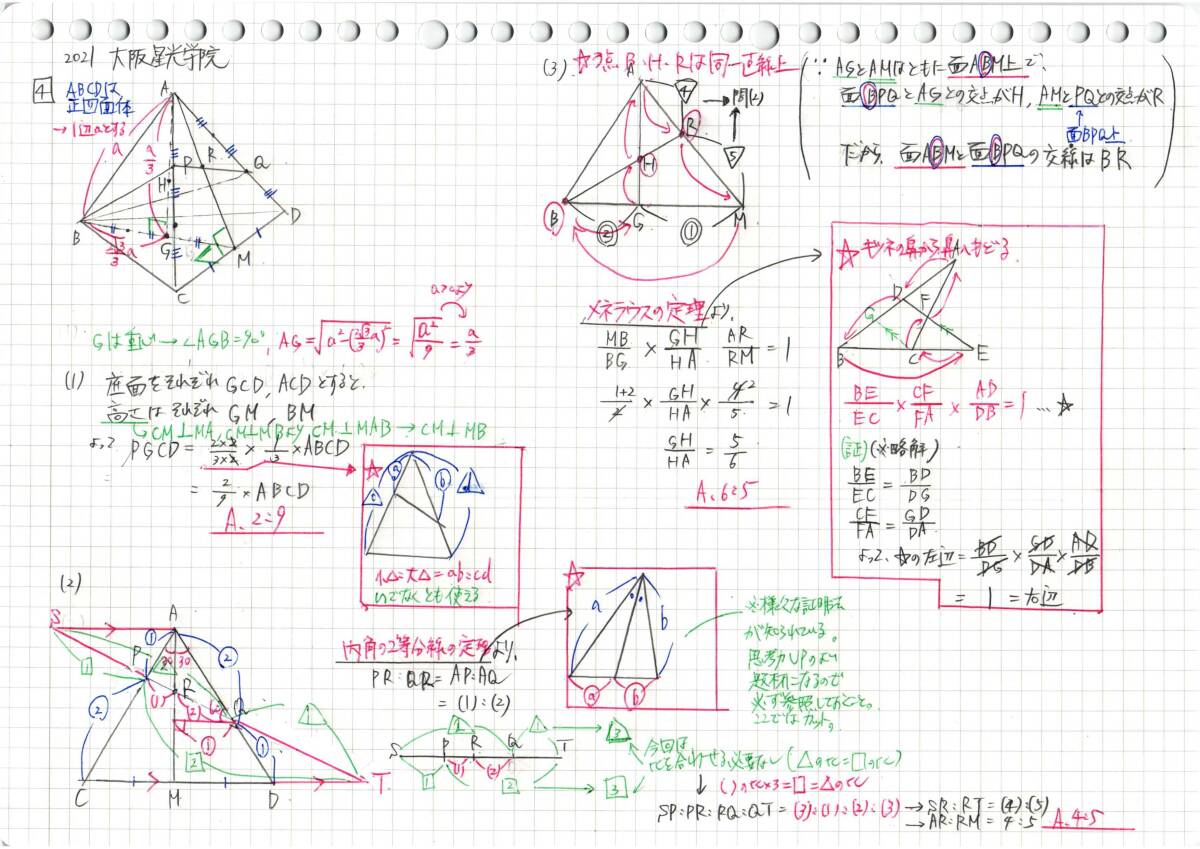 2021 大阪星光学院
4
ABCDは
正四面体
→1辺aとする
A
a
a/3
P
R
Q
H
B
D
G
M
C
√3/3 a
Gは重心→∠AGB=90°, AG=√a²-(√3/3 a)² = √a²/9 = a/3
a>0より
(1) 底面をそれぞれ GCD, ACDとすると、
高さはそれぞれ GM, BM
CM⊥MA, CM⊥MBより CM⊥MAB → CM⊥MB
よって PGCD = 2×2/3×2 × 1/3 × ABCD
= 2/9 × ABCD
A. 2:9
小△:大△=ab:cd
いつでなくとも使える
(2)
S
A
P
R
Q
C
M
D
T
30
30
内角の2等分線の定理より、
PR:QR = AP:AQ
= (1):(2)
a
b
※様々な証明法
が知られている。
思考力UPのより
題材になるので
必ず参照しておくこと。
ここではカット。
S P R Q T
今回は
比を合わせる必要なし (△の比=□の比)
( )の比×3=□=△の比
SP:PR:RQ:QT = (3):(1):(2):(3) → SR:RT = (4):(5)
→ AR:RM = 4:5 A. 4:5
(3) ☆3点 B・H・Rは同一直線上
(∵ AGとAMはともに面ABM上で、
面BPQとAGとの交点がH, AMとPQとの交点がR
面BPQ上
だから、面ABMと面BPQの交線はBR)
A
4
→問(2)
R
5
H
B
G
M
②
①
メネラウスの定理より、
MB/BG × GH/HA × AR/RM = 1
1+2/2 × GH/HA × 4/5 = 1
GH/HA = 5/6
A. 6:5
☆キツネの鼻から鼻へもどる
A
D
F
G
B
C
E
BE/EC × CF/FA × AD/DB = 1 …☆
(証)(※略解)
BE/EC = BD/DG
CF/FA = GD/DA
よって、☆の左辺 = BD/DG × GD/DA × AD/DB
= 1 = 右辺